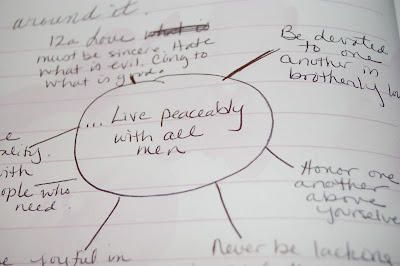 around it.
12a Love what is
must be sincere. Hate
what is evil. Cling to
what is good.
Be devoted
to one
another in
brotherly lo
... Live peaceably
with all
men
ality.
with
ople who
need.
Honor one
another
above
yourselve
joyful in
Never be lacking